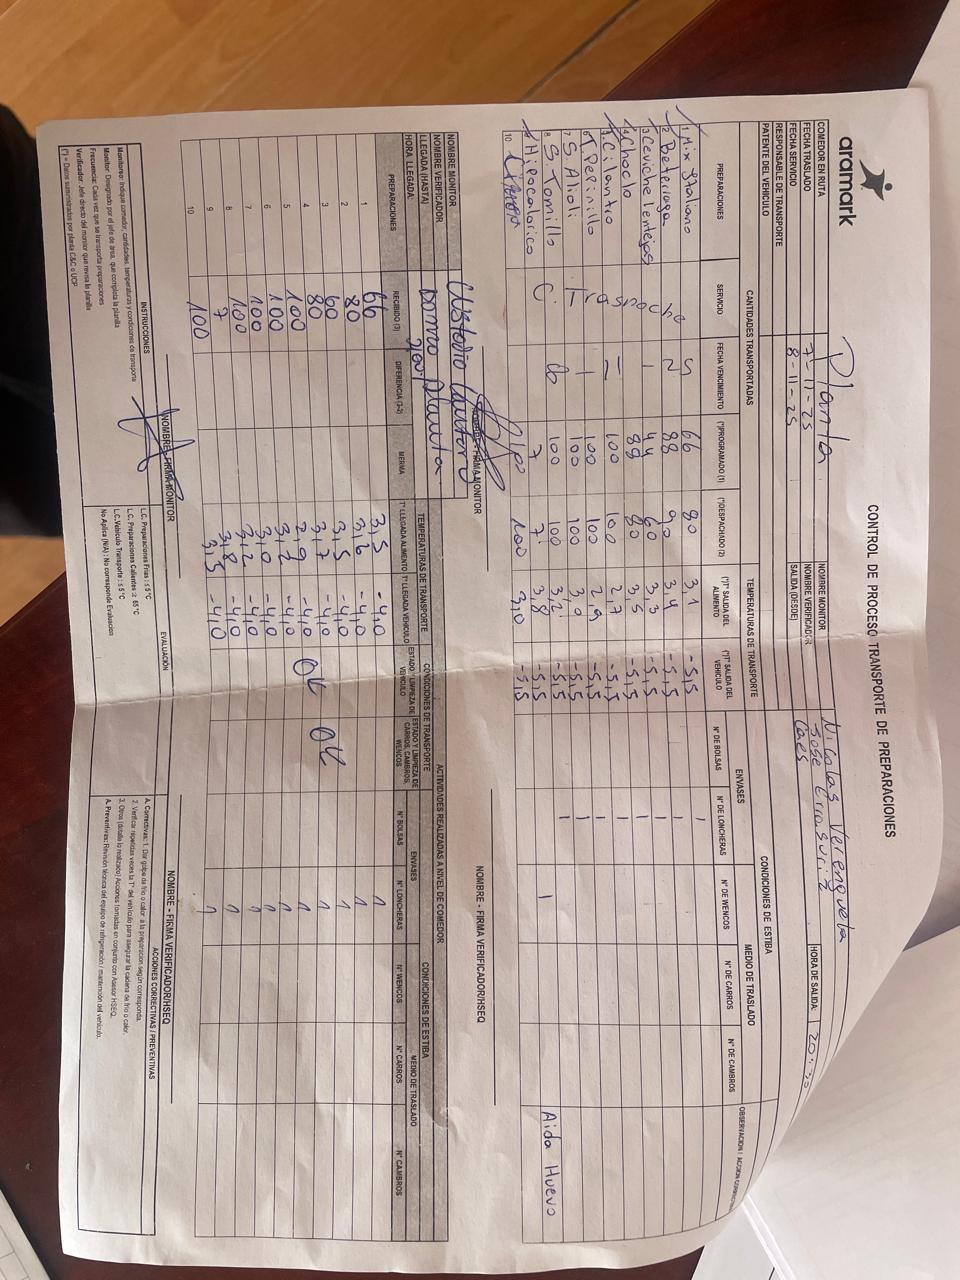 aramark
CONTROL DE PROCESO TRANSPORTE DE PREPARACIONES
COMEDOR EN RUTA Planta NOMBRE MONITOR Nicolas Verenguela HORA DE SALIDA:
FECHA TRASLADO 7-11-25 NOMBRE VERIFICADOR Jose Errasuriz
FECHA SERVICIO 8-11-25 SALIDA (DESDE) Caes
RESPONSABLE DE TRANSPORTE
PATENTE DEL VEHICULO
CANTIDADES TRANSPORTADAS TEMPERATURAS DE TRANSPORTE CONDICIONES DE ESTIBA
ENVASES MEDIO DE TRASLADO
PREPARACIONES SERVICIO FECHA VENCIMIENTO (*)PROGRAMADO (1) (*)DESPACHADO (2) (*)T° SALIDA DEL ALIMENTO (*)T° SALIDA DEL VEHICULO N° DE BOLSAS N° DE LONCHERAS N° DE WENCOS N° DE CARROS N° DE CAMBROS OBSERVACION / ACCION
1 Mix Italiano 66 80 3,1 -5,5 1
2 Betarraga 88 90 3,4 -5,5 1
3 Ceviche lentejas 44 60 3,3 -5,5 1
4 Choclo 88 80 3,5 -5,5 1
5 Cilantro 100 100 2,7 -5,5 1
6 Pepinillo 100 100 2,9 -5,5 1
7 S. Alioli 100 100 3,0 -5,5 1
8 S. Tomillo 100 100 3,2 -5,5 1
9 Hipocalorico C. 7 7 3,8 -5,5 1 Aida Huevo
10 100 100 3,0 -5,5
Trasnoche
NOMBRE - FIRMA MONITOR NOMBRE - FIRMA VERIFICADOR/HSEQ
NOMBRE MONITOR Custodio Cautero
NOMBRE VERIFICADOR
LLEGADA (HASTA) Planta
HORA LLEGADA:
ACTIVIDADES REALIZADAS A NIVEL DE COMEDOR
TEMPERATURAS DE TRANSPORTE CONDICIONES DE TRANSPORTE CONDICIONES DE ESTIBA
ENVASES MEDIO DE TRASLADO
PREPARACIONES RECIBIDO (3) DIFERENCIA (3-2) MERMA T° LLEGADA ALIMENTO T° LLEGADA VEHICULO ESTADO / LIMPIEZA DE VEHICULO ESTADO Y LIMPIEZA DE CARROS, CAMBROS, WENCOS N° BOLSAS N° LONCHERAS N° WENCOS N° CARROS N° CAMBROS
1 66 3,5 -4,0 1
2 80 3,6 -4,0 1
3 60 3,5 -4,0 1
4 80 3,7 -4,0 OK OK 1
5 100 2,9 -4,0 1
6 100 3,2 -4,0 1
7 100 3,0 -4,0 1
8 100 3,2 -4,0 1
9 7 3,8 -4,0 1
10 100 3,5 -4,0 1
NOMBRE - FIRMA MONITOR NOMBRE - FIRMA VERIFICADOR/HSEQ
INSTRUCCIONES EVALUACIÓN ACCIONES CORRECTIVAS / PREVENTIVAS
Monitoreo: Indique comedor, cantidades, temperaturas y condiciones de transporte
Monitor: Designado por el jefe de área, que completa la planilla
Frecuencia: Cada vez que se transporta preparaciones
Verificador: Jefe directo del monitor que revisa la planilla
(*) = Datos suministrados por planta C&C o UCP
L.C. Preparaciones Frias : ≤ 5 °C
L.C. Preparaciones Calientes :≥ 65 °C
L.C. Vehiculo Transporte : ≤ 5 °C
No Aplica (N/A) : No corresponde Evaluacion
A. Correctivas: 1. Dar golpe de frio o calor a la preparacion según corresponda.
2. Verificar repetidas veces la T° del vehículo para asegurar la cadena de frio o calor.
3. Otros (detalla lo realizado) Acciones tomadas en conjunto con Asesor HSEQ.
A. Preventivas: Revisión técnica del equipo de refrigeración / mantención del vehículo.